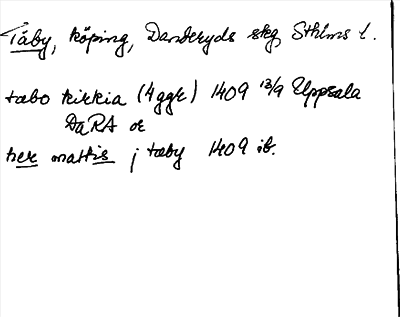 Täby, köping, Danderyds skg, Sthlms l.
tæbo kirkia (4 ggr) 1409 13/9 Uppsala
DaRA or
her mattis j tæby 1409 ib.